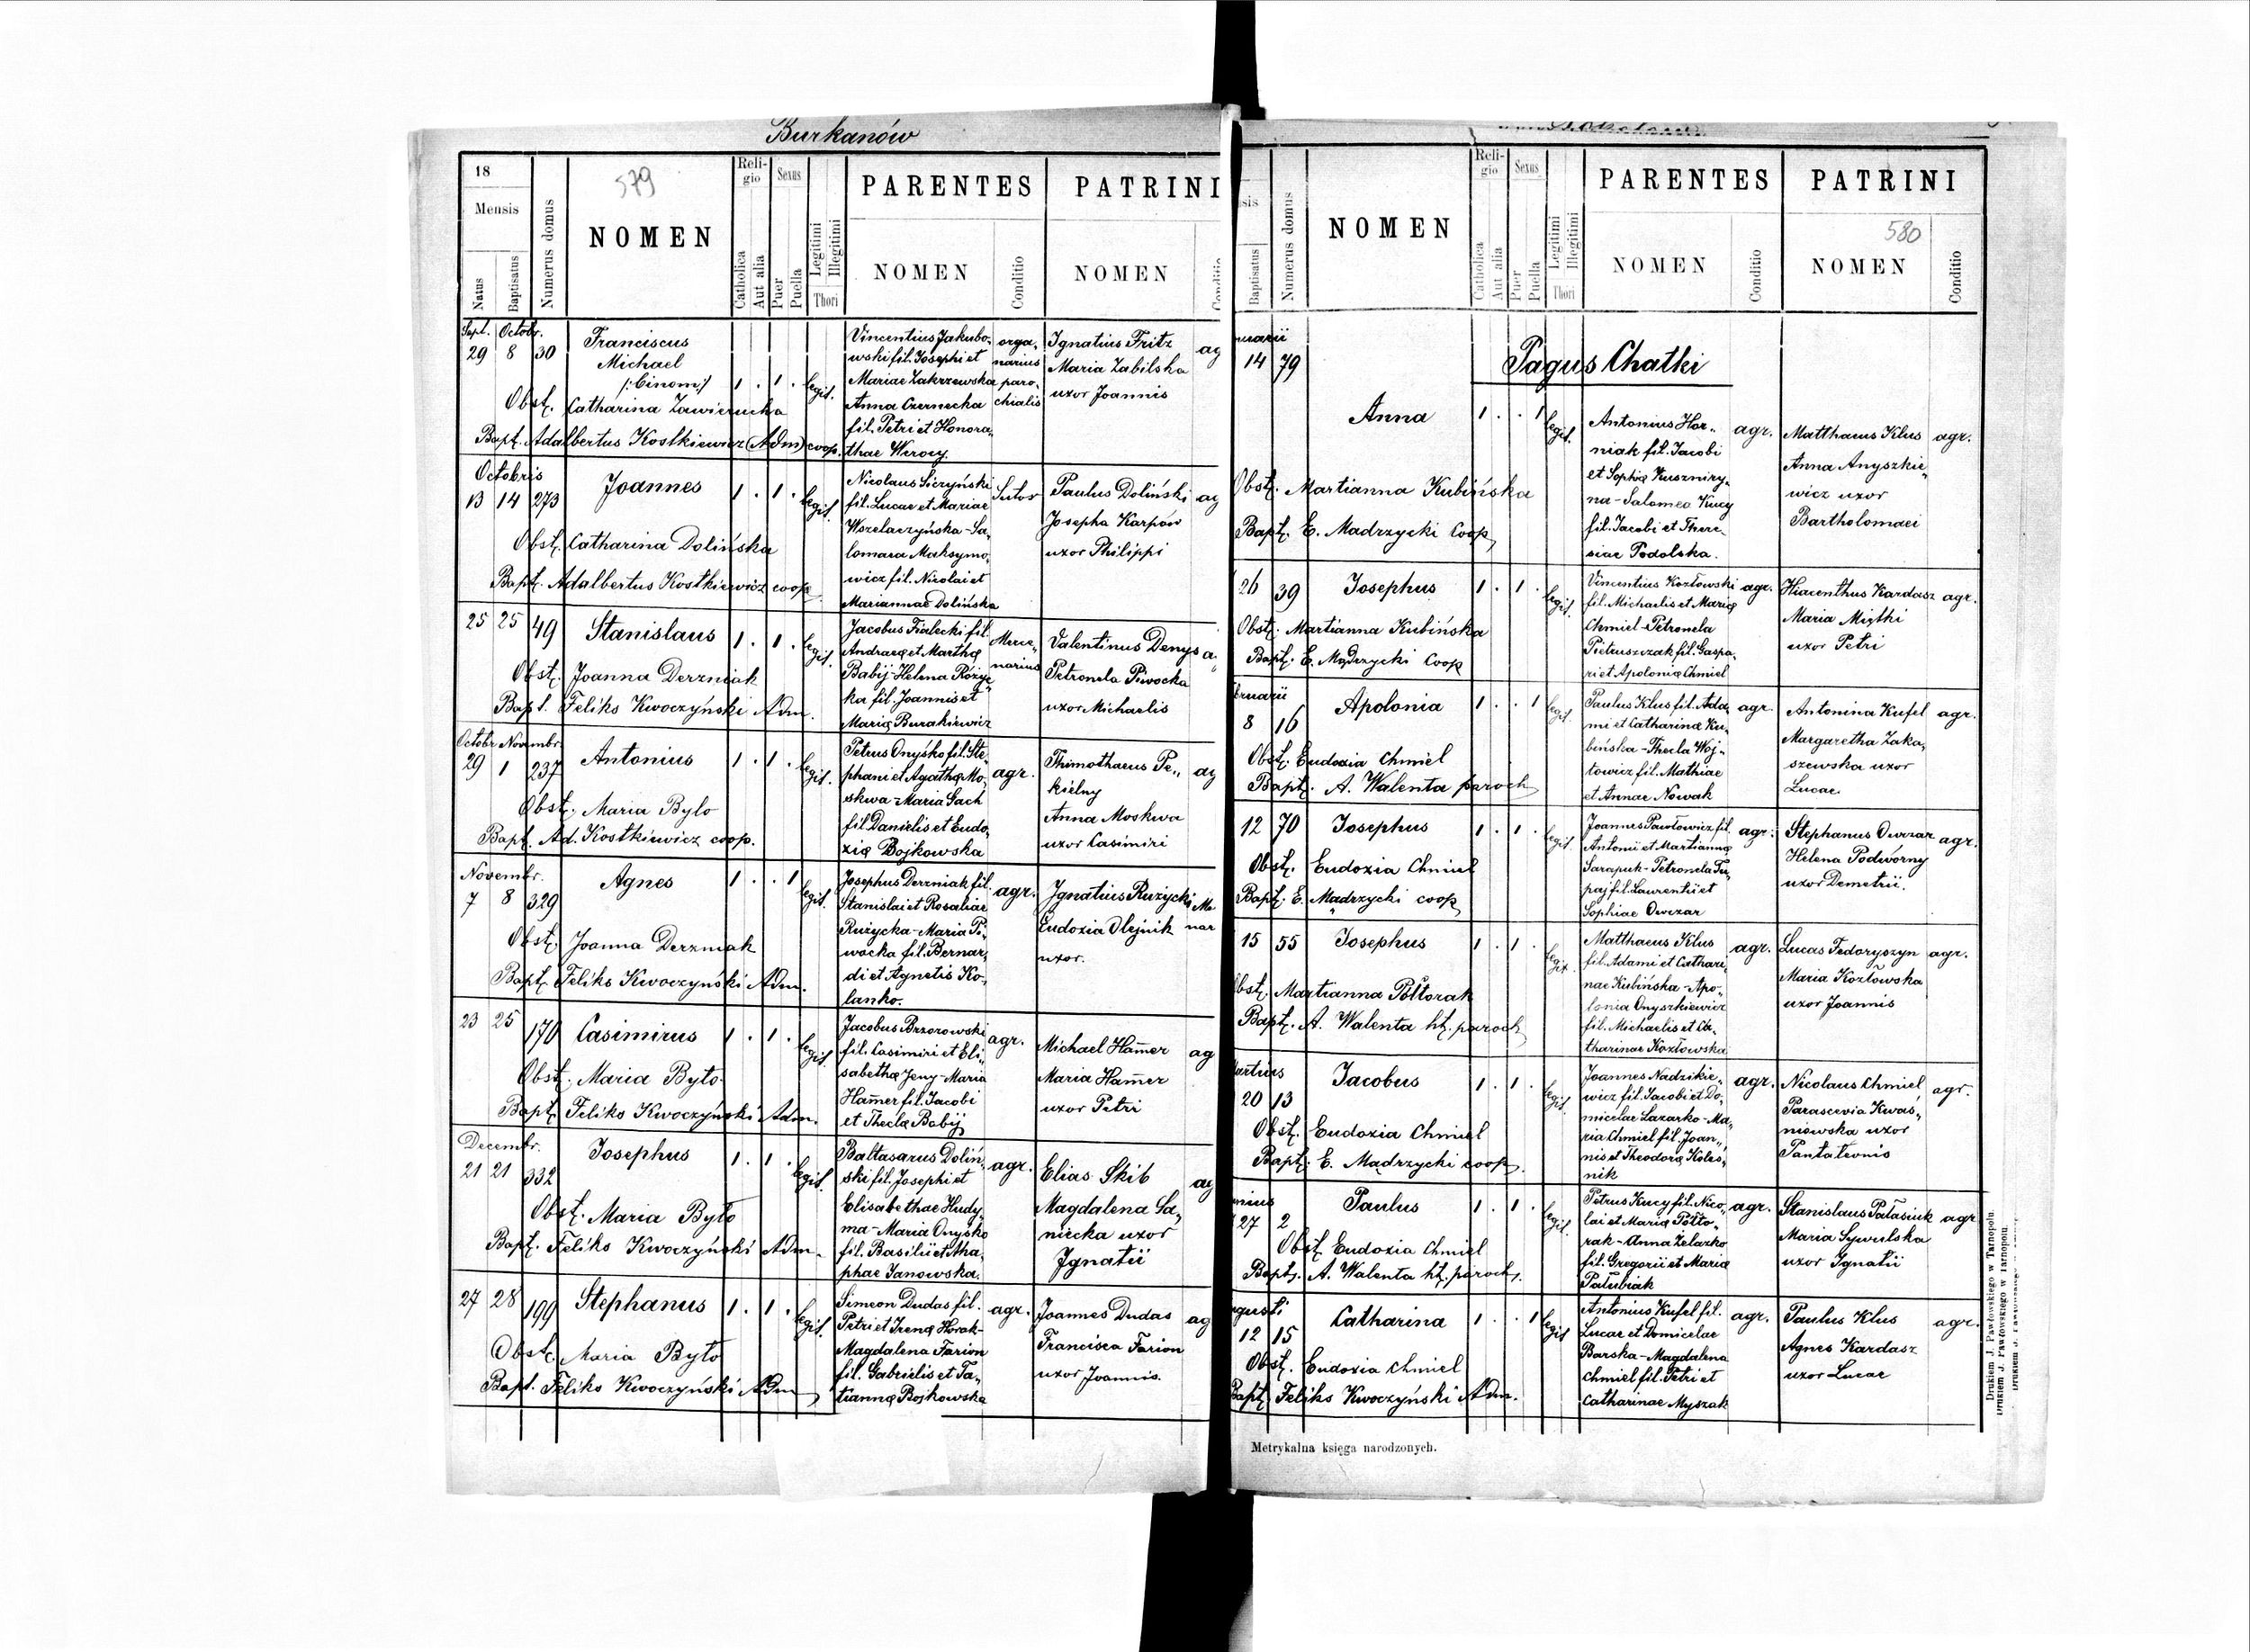 Burkanów
18
579
Mensis
Natus
Baptisatus
Numerus domus
NOMEN
Religio
Catholica
Aut alia
Sexus
Puer
Puella
Legitimi
Illegitimi
Thori
PARENTES
NOMEN
Conditio
PATRINI
NOMEN
Sept. Octobr.
29 8 30 Franciscus
Michael
/:Binom:/ 1 . 1 . legit.
Obst. Catharina Zawierucha
Bapt. Adalbertus Kostkiewicz (Adm) coop.
Vincentius Jakubo-
wski fil. Josephi et
Mariae Zakrzewska
Anna Czernecka
fil. Petri et Honora-
thae Werocy.
orga-
narius
paro-
chialis
Ignatius Fritz ag
Maria Zabilska
uxor Joannis
Octobris
13 14 273 Joannes 1 . 1 . legit.
Obst. Catharina Dolińska
Bapt. Adalbertus Kostkiewicz coop
Nicolaus Siczyński
fil. Lucae et Mariae
Wszelaczyńska - Sa-
lomaea Maksymo-
wicz fil. Nicolai et
Mariannae Dolińska
Sutor
Paulus Doliński ag
Josepha Karpów
uxor Philippi
25 25 49 Stanislaus 1 . 1 . legit.
Obst. Joanna Derzniak
Bapt. Feliks Kwoczyński Adm.
Jacobus Fialecki fil.
Andraeą et Marthą
Babij - Helena Rózyc
ka fil. Joannis et
Marią Burakiewicz
Merce-
narius
Valentinus Denys a
Petronela Piwocka
uxor Michaelis
Octobr. Novembr.
29 1 237 Antonius 1 . 1 . legit.
Obst. Maria Bylo
Bapt. Ad. Kostkiewicz coop.
Petrus Onyśko fil. Ste-
phani et Agathą Mo-
skwa - Maria Gach
fil Danielis et Eudo-
xią Bojkowska
agr.
Thimothaeus Pe-
kielny ag
Anna Moskwa
uxor Casimiri
Novembr.
7 8 329 Agnes 1 . . 1 legit.
Obst. Joanna Derzniak
Bapt. Feliks Kwoczyński Adm.
Josephus Derzniak fil.
Stanislai et Rosaliae
Ruzycka - Maria Pi-
wocka fil. Bernar-
di et Agnetis Ko-
lanko.
agr.
Ignatius Ruzycki Me
Eudoxia Olejnik nar
uxor.
23 25 170 Casimirus 1 . 1 . legit.
Obst. Maria Było
Bapt. Feliks Kwoczyński Adm.
Jacobus Brzozowski
fil. Casimiri et Eli-
sabethą Jeny - Maria
Ham̄er fil. Jacobi
et Theclą Babij
agr.
Michael Ham̄er ag
Maria Ham̄er
uxor Petri
Decembr.
21 21 332 Josephus 1 . 1 . legit.
Obst. Maria Było
Bapt. Feliks Kwoczyński Adm.
Baltasarus Doliń-
ski fil. Josephi et
Elisabethae Hudy-
ma - Maria Onyśko
fil. Basilii et Atha-
phae Janowska.
agr.
Elias Skib ag
Magdalena Sa-
niecka uxor
Ignatii
27 28 199 Stephanus 1 . 1 . legit.
Obst. Maria Było
Bapt. Feliks Kwoczyński Adm
Simeon Dudas fil.
Petri et Ireną Horak-
Magdalena Farion
fil. Gabrielis et Ta-
tianną Bojkowska
agr.
Joannes Dudas ag
Francisca Farion
uxor Joannis.
Baptisatus
Numerus domus
NOMEN
Religio
Catholica
Aut alia
Sexus
Puer
Puella
Legitimi
Illegitimi
Thori
PARENTES
NOMEN
Conditio
PATRINI
580
NOMEN
Conditio
nuarii
14 79
Pagus Chatki
Anna 1 . . 1 legit.
Obst. Martianna Kubińska
Bapt. E. Madrzycki Coop
Antonius Hor-
niak fil. Jacobi
et Sophią Kuszniry-
na - Salomea Kucy
fil. Jacobi et There-
siae Podolska.
agr.
Matthaeus Klus agr.
Anna Anyszkie-
wicz uxor
Bartholomaei
26 39 Josephus 1 . 1 . legit.
Obst. Martianna Kubińska
Bapt. E. Mądrzycki Coop
Vincentius Kozłowski
fil. Michaelis et Marią
Chmiel - Petronela
Pietuszczak fil. Gaspa-
ri et Apolonią Chmiel
agr.
Hiacenthus Kardasz agr.
Maria Miętki
uxor Petri
bruarii
8 16 Apolonia 1 . . 1 legit.
Obst. Eudoxia Chmiel
Bapt. A. Walenta paroch
Paulus Klus fil. Ada-
mi et Catharina Ku-
bińska - Thecla Woj-
towicz fil. Mathiae
et Annae Nowak
agr.
Antonina Kufel agr.
Margaretha Zaka-
szewska uxor
Lucae
12 70 Josephus 1 . 1 . legit.
Obst. Eudoxia Chmiel
Bapt. E. Mądrzycki coop
Joannes Pawłowicz fil.
Antonii et Martianną
Sarapuk - Petronela Tu-
paj fil. Laurentii et
Sophiae Owczar
agr.
Stephanus Owczar agr.
Helena Podwórny
uxor Demetrii.
15 55 Josephus 1 . 1 . legit.
Obst. Martianna Półtorak
Bapt. A. Walenta ht. paroch
Matthaeus Klus
fil. Adami et Cathari-
nae Kubińska - Apo-
lonia Onyszkiewicz
fil. Michaelis et Ca-
tharinae Kozłowska
agr.
Lucas Fedoryszyn agr.
Maria Kozłowska
uxor Joannis
Martius
20 13 Jacobus 1 . 1 . legit.
Obst. Eudoxia Chmiel
Bapt. E. Mądrzycki coop.
Joannes Nadzikie-
wicz fil. Jacobi et Do-
micelae Lazarko - Ma-
ria Chmiel fil. Joan-
nis et Theodorą Koleś-
nik
agr.
Nicolaus Chmiel agr.
Parascevia Kwaś-
niewska uxor
Pantaleonis
nius
27 2 Paulus 1 . 1 . legit.
Obst. Eudoxia Chmiel
Bapt. A. Walenta ht. paroch.
Petrus Kucy fil. Nico-
lai et Marią Półto-
rak - Anna Zelazko
fil. Gregorii et Marią
Pałubiak
agr.
Stanislaus Pałasiuk agr
Maria Sywulska
uxor Ignatii
gusti
12 15 Catharina 1 . . 1 legit
Obst. Eudoxia Chmiel
Bapt. Feliks Kwoczyński Adm.
Antonius Kufel fil.
Lucae et Domicelae
Barska - Magdalena
Chmiel fil. Petri et
Catharinae Myszak
agr.
Paulus Klus agr.
Agnes Kardasz
uxor Lucae
Metrykalna księga narodzonych.
Drukiem J. Pawłowskiego w Tarnopolu.